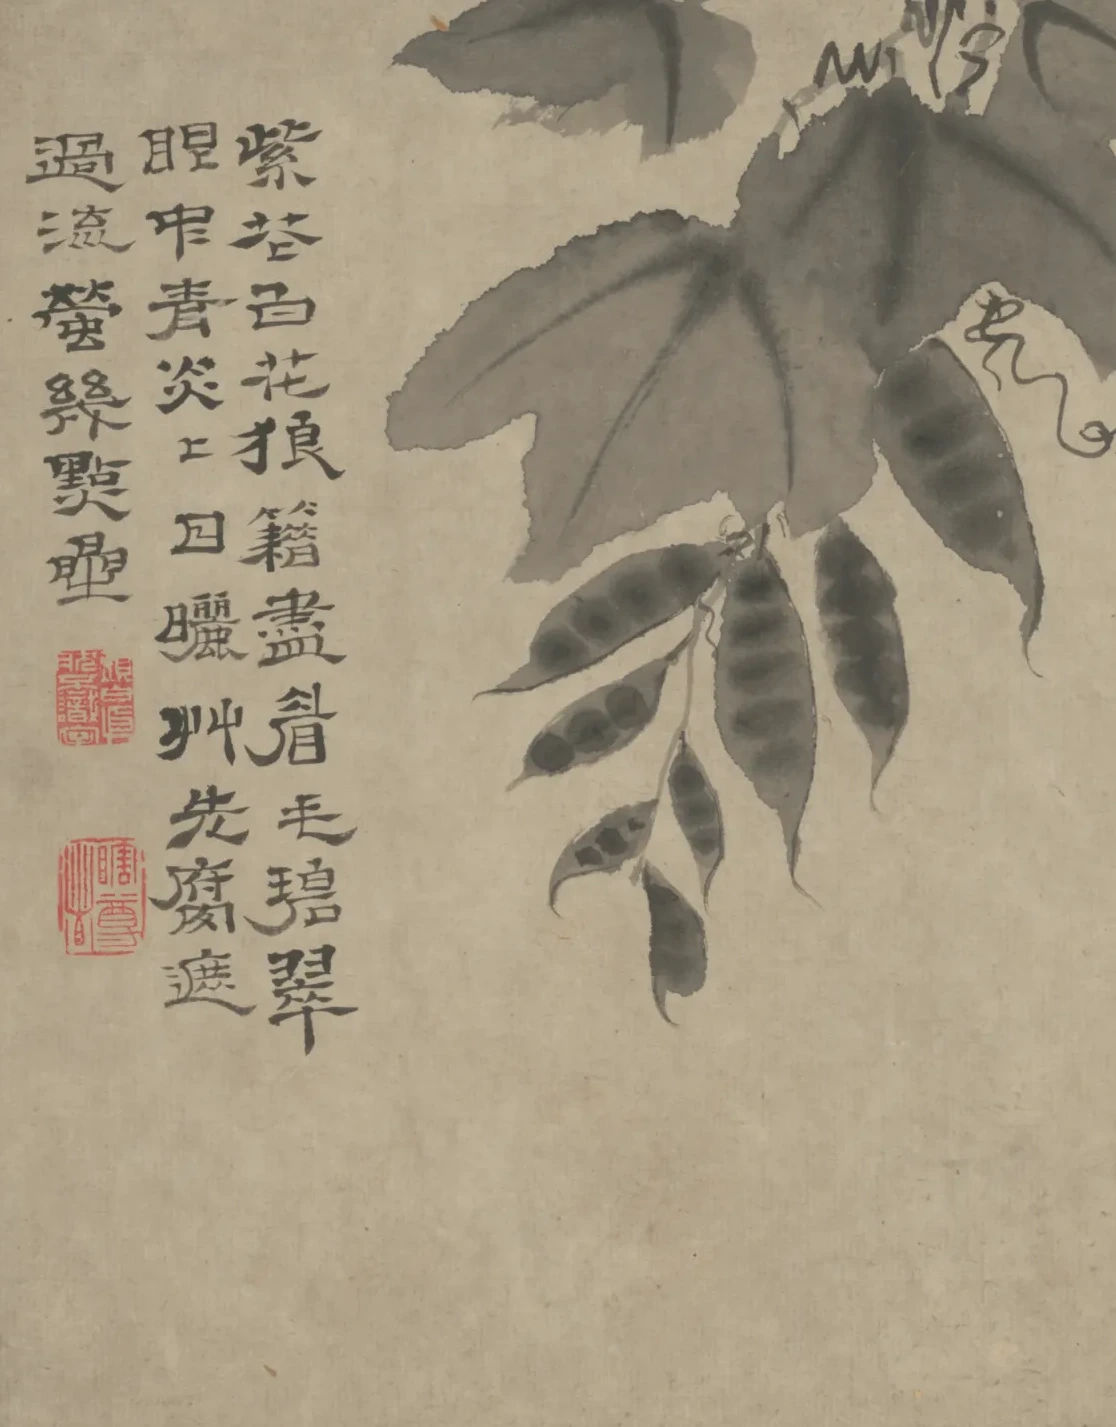 紫芒白花狼籍盡眉毛碧翠
眼中青炎上日曬艸先腐遮
過流螢幾點星